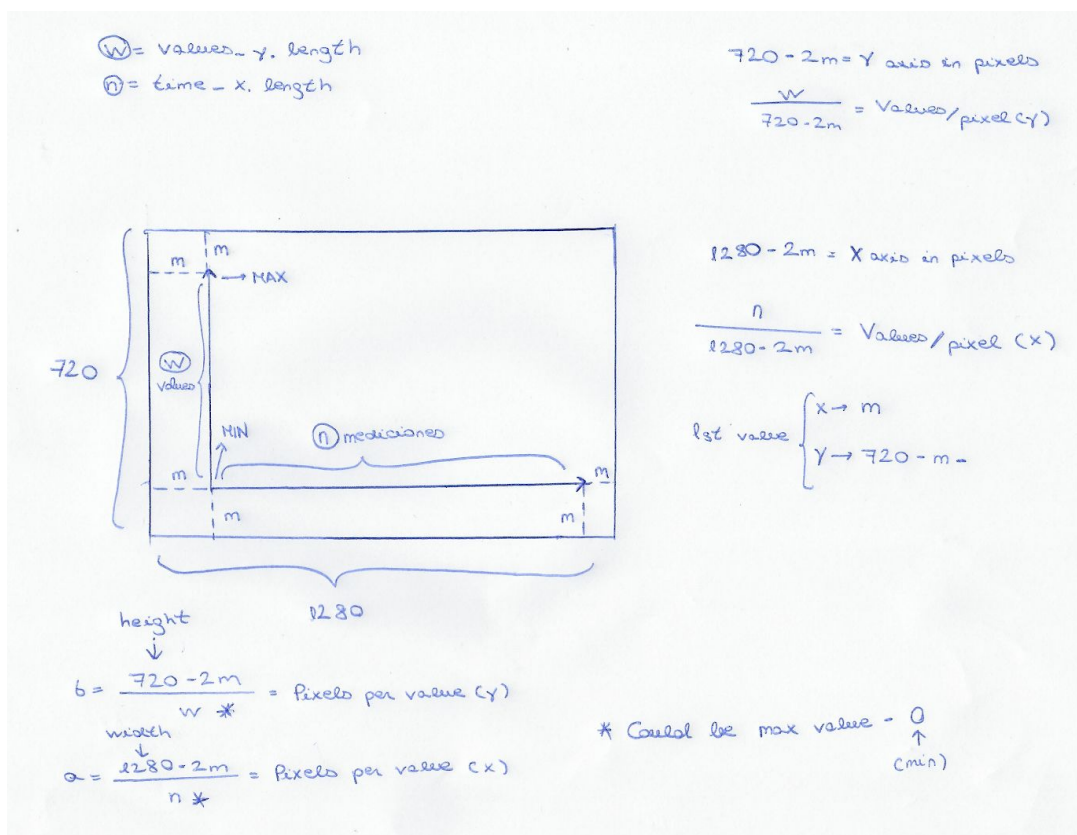 W = values_y. length
n = time_x. length
720-2m = Y axis in pixels
W / 720-2m = Values/pixel (Y)
1280-2m = X axis in pixels
n / 1280-2m = Values/pixel (X)
1st value { X → m
Y → 720-m-
m
m
→ MAX
720
W
values
MIN
n mediciones
m
m
m
m
1280
height
↓
b = 720-2m / W * = Pixels per value (Y)
width
↓
a = 1280-2m / n * = Pixels per value (X)
* Could be max value - 0
↑
(min)